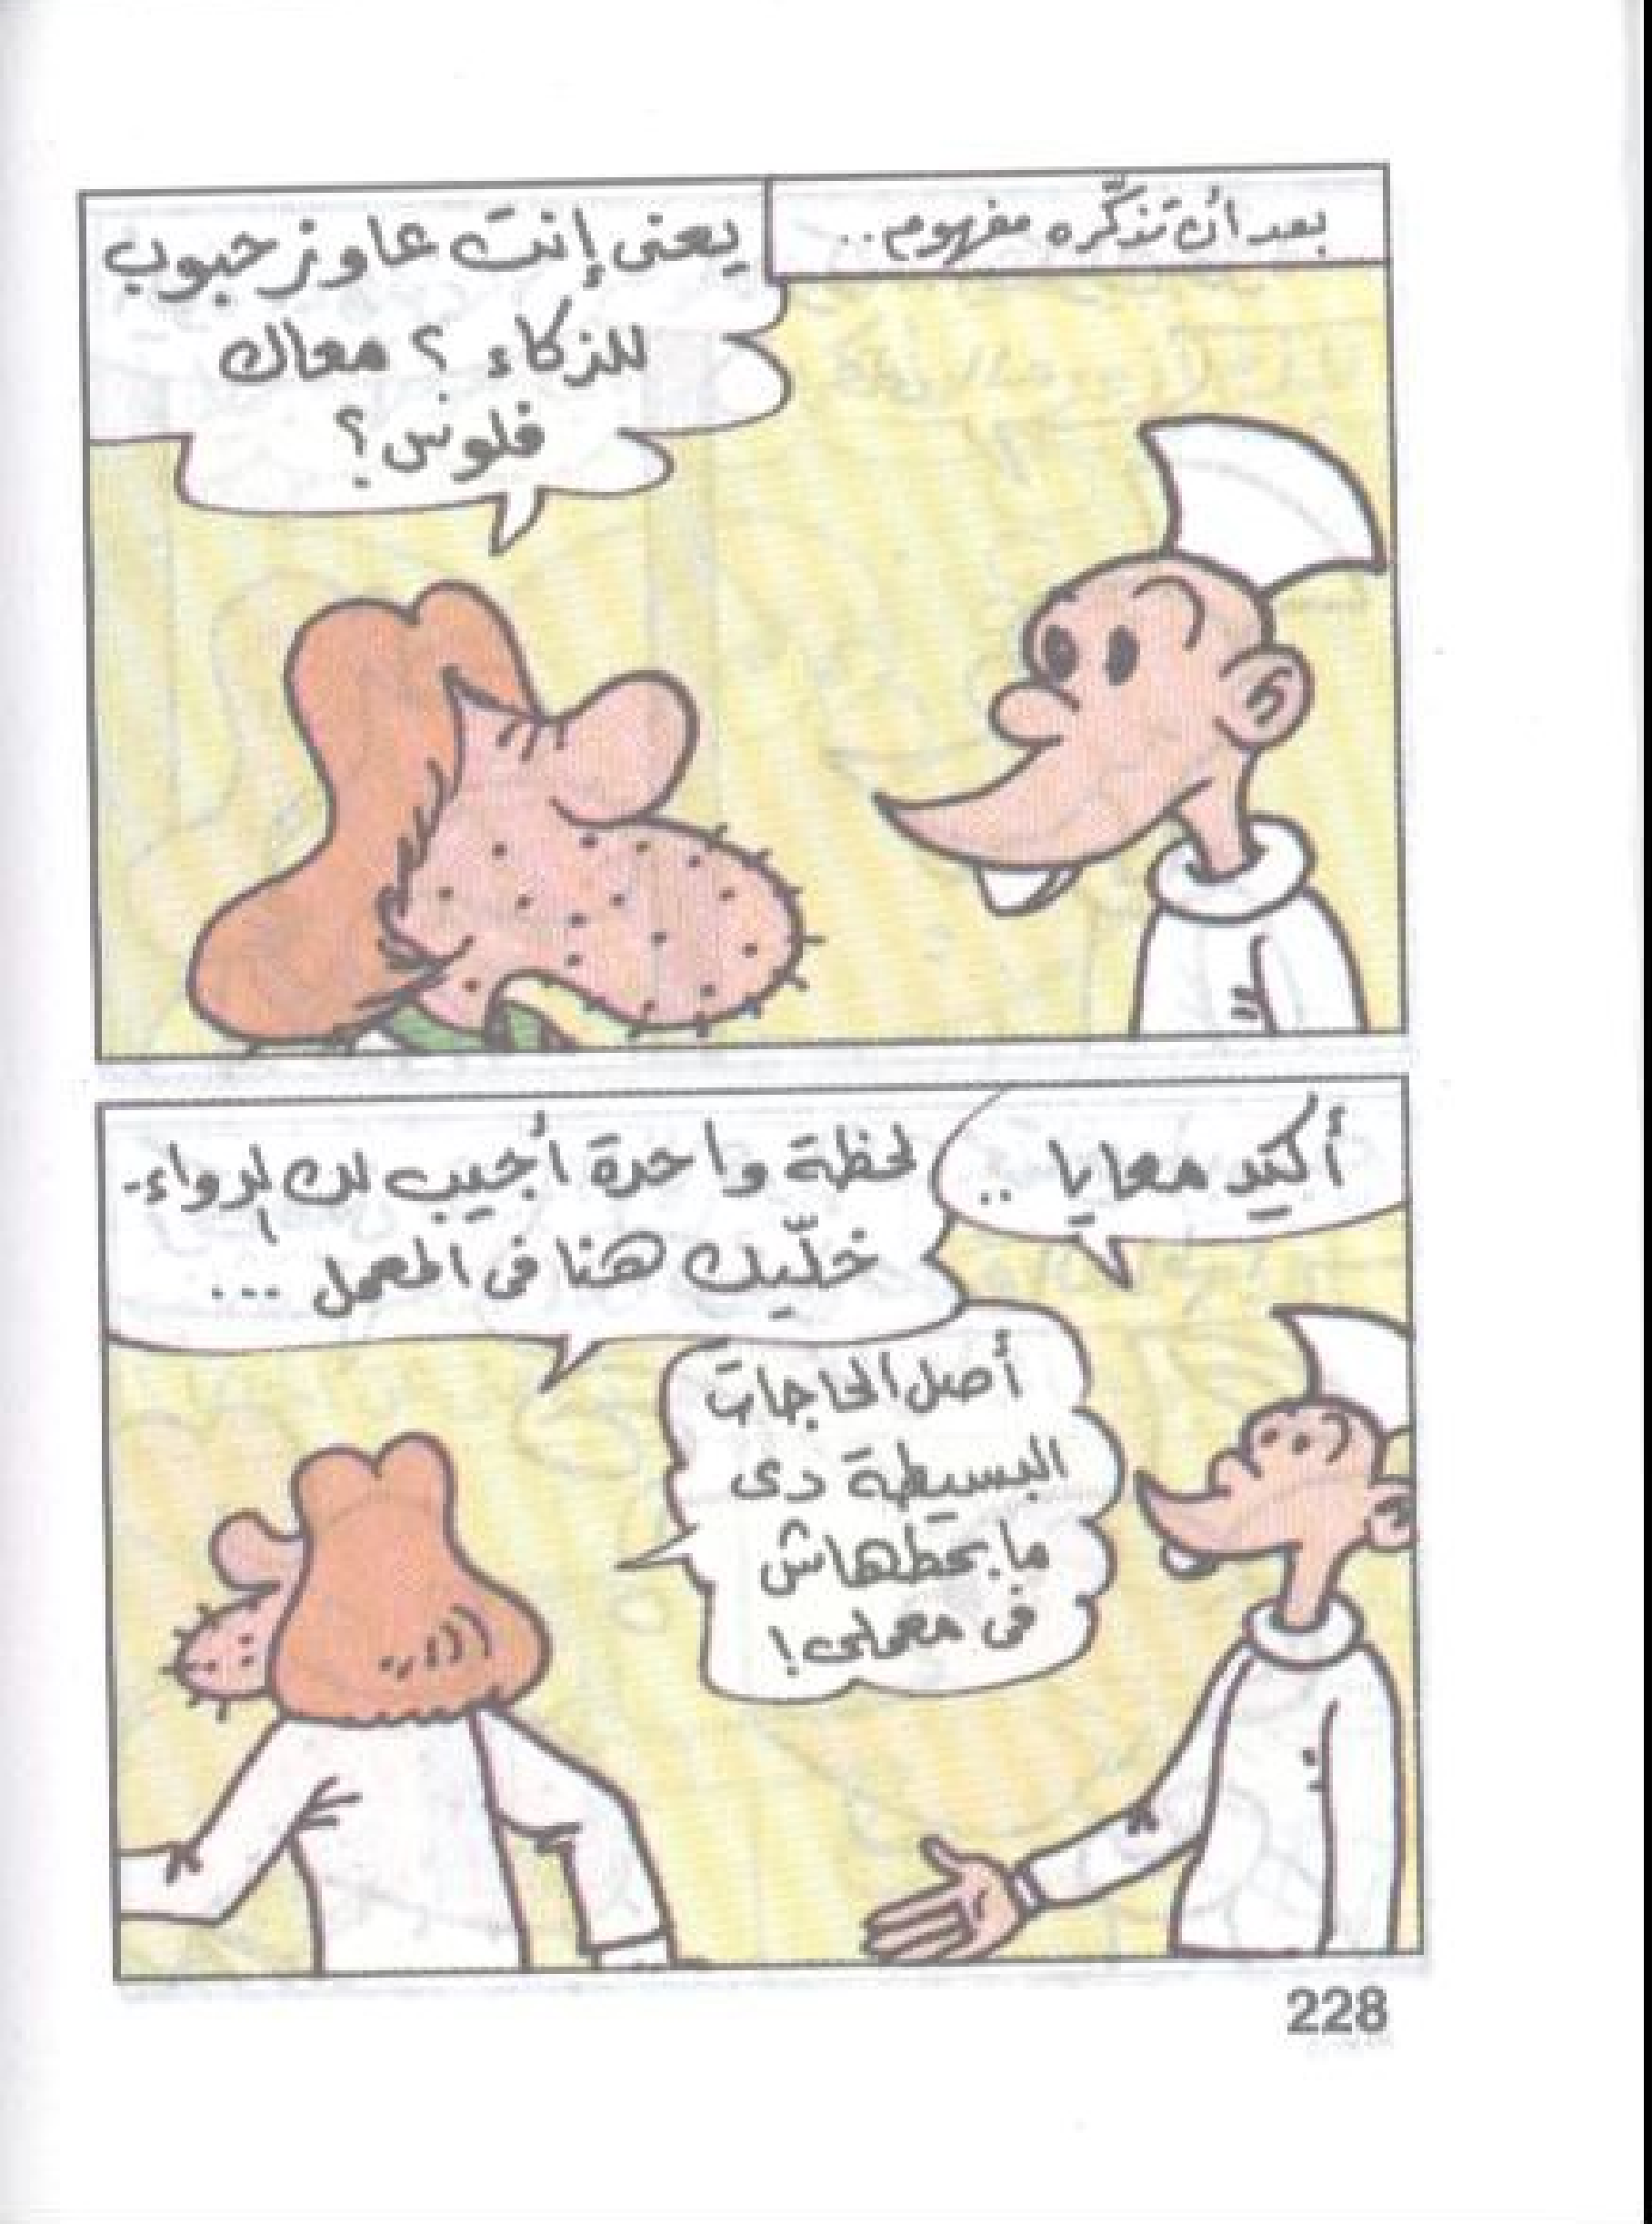 بعد أن تذكّره مفهوم..
يعنى إنت عاوز حبوب
للذكاء ؟ معاك
فلوس؟
أكيد معايا ..
لحظة واحدة أجيب لك الدواء -
خلّيك هنا فى المعمل ...
أصل الحاجات
البسيطة دى
ما بحطهاش
فى معملى!
228